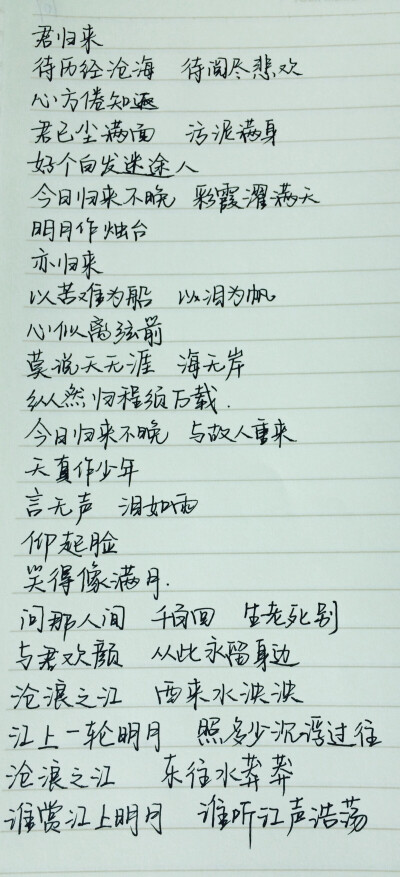 君归来
待历经沧海 待阅尽悲欢
心方倦知返
君已尘满面 污泥满身
好个白发迷途人
今日归来不晚 彩霞濯满天
明月作烛台
亦归来
以苦难为船 以泪为帆
心似离弦箭
莫说天无涯 海无岸
纵然归程须万载.
今日归来不晚 与故人重来
天真作少年
言无声 泪如雨
仰起脸
笑得像满月.
问那人间 千百回 生老死别
与君欢颜 从此永留身边
沧浪之江 西来水泱泱
江上一轮明月 照多少沉浮过往
沧浪之江 东往水莽莽
谁赏江上明月 谁听江声浩荡